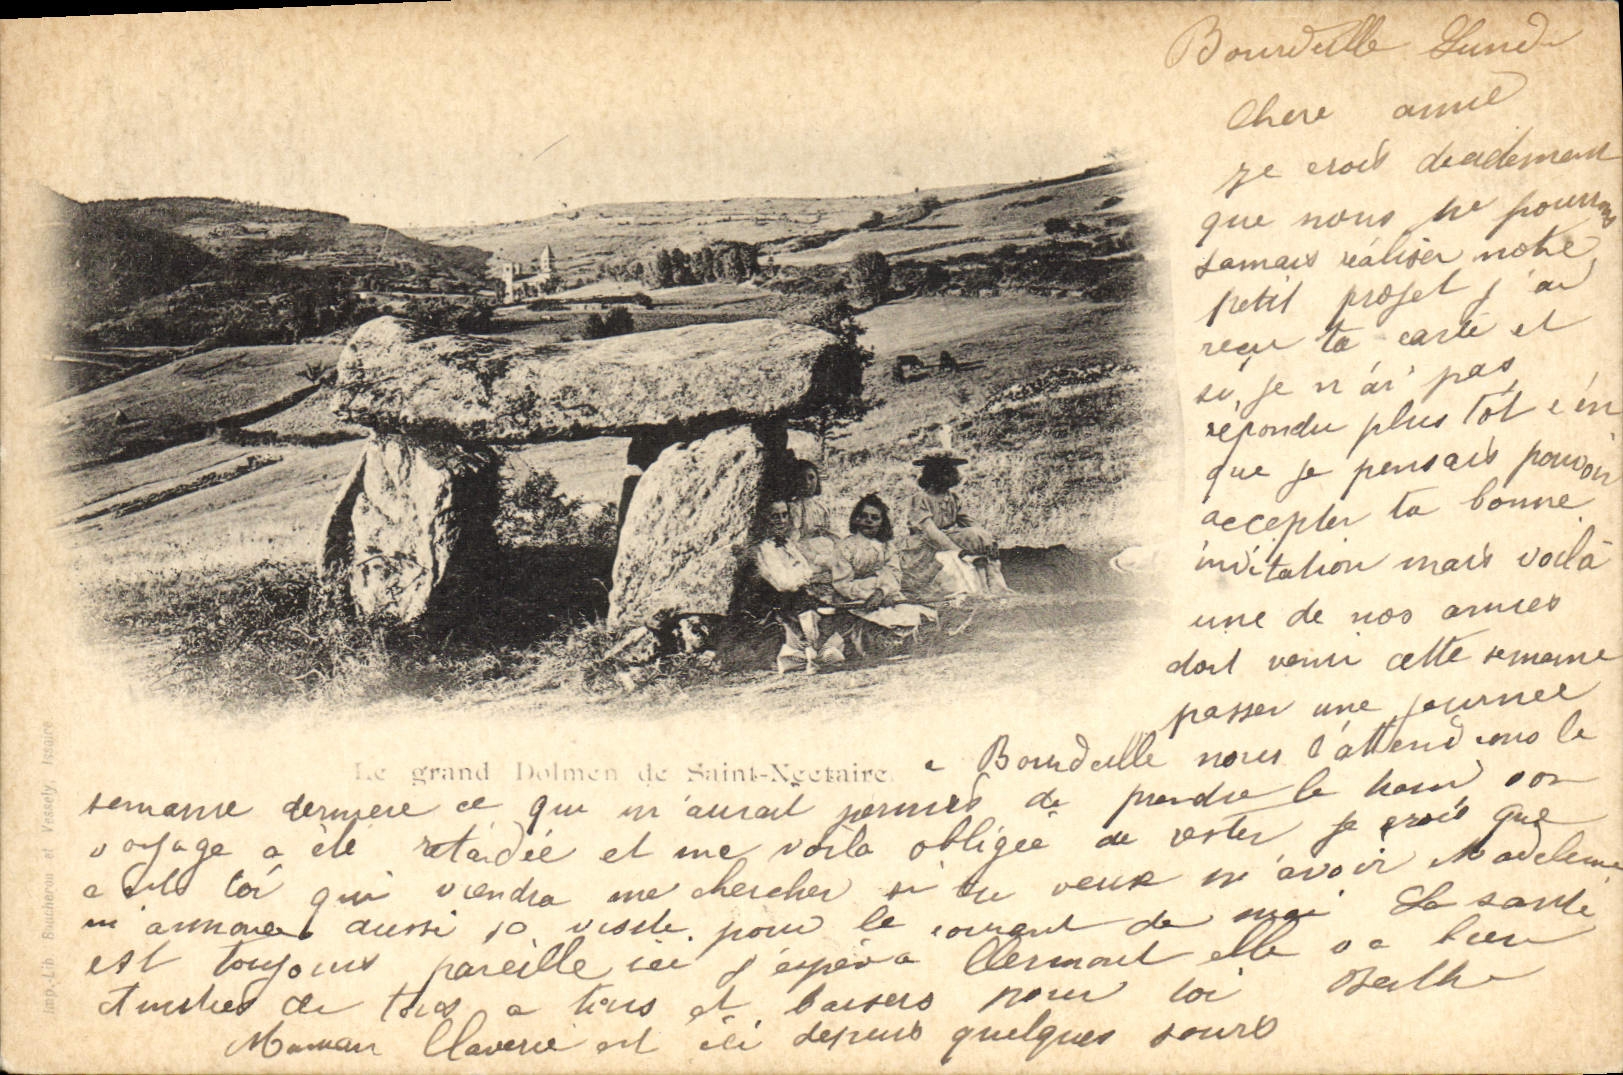 Bourdeille Lundi
Chere amie
Je crois decidement
que nous ne pourrons
jamais réaliser notre
petit projet j'ai
reçu ta carte et
si je n'ai pas
répondu plus tôt c'en
que je pensais pouvoir
accepter ta bonne
invitation mais voilà
une de nos amies
doit venir cette semaine
passer une journee
Le grand Dolmen de Saint-Nectaire.
a Bourdeille nous l'attendions la
semaine derniere ce qui m'aurait permis de prendre le train son
voyage a été retardée et me voila obligée de rester je crois que
toi qui viendra me chercher si tu veux m'avoir Madeleine
m'annonce aussi sa visite pour le courant de mai La santé
est toujours pareille ici j'espère a Clermont elle va bien
Amities de tous a tous et baisers pour toi Berthe
Maman Claverie est ici depuis quelques jours
Imp.-Lib. Boucheron et Vessely, Issoire